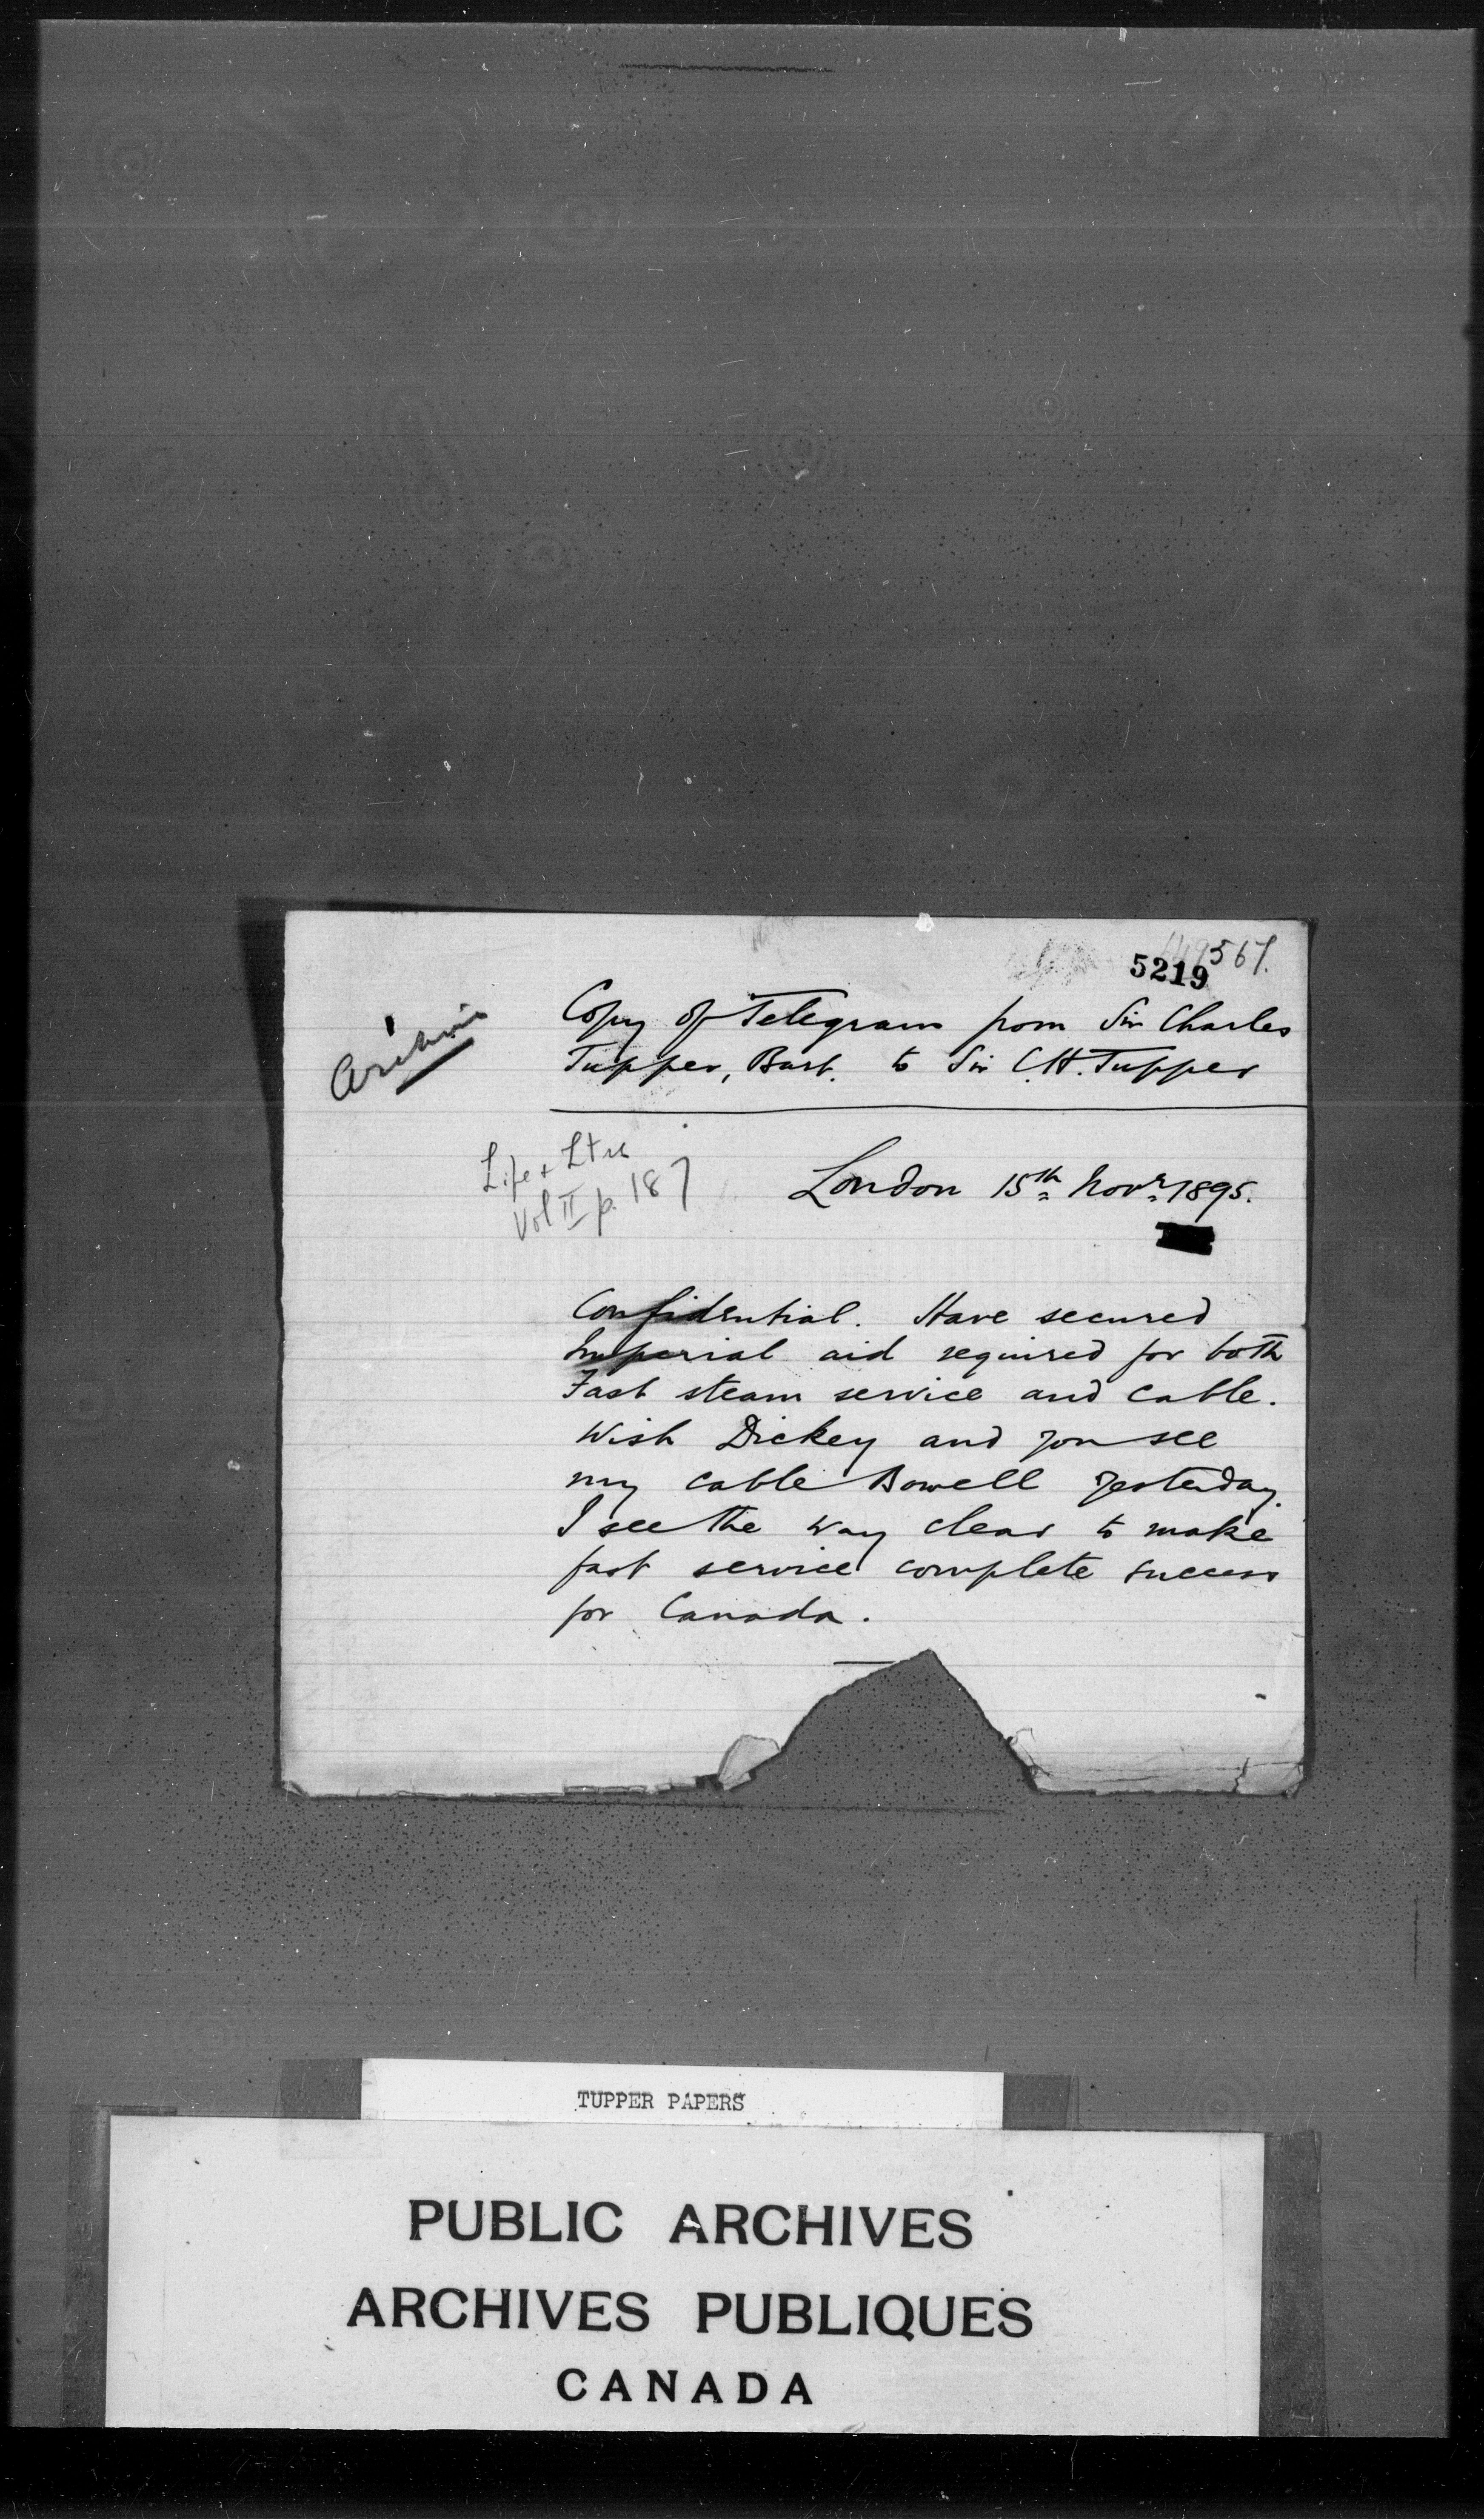 5219
Copy of Telegram from Sir Charles
Tupper, Bart. to Sir C.H. Tupper
Life + Ltrs
Vol II p. 187
London 15th Novr 1895.
Confidential. Have secured
Imperial aid required for both
Fast steam service and cable.
Wish Dickey and you see
my cable Bowell yesterday.
I see the way clear to make
fast service complete success
for Canada.
TUPPER PAPERS
PUBLIC ARCHIVES
ARCHIVES PUBLIQUES
CANADA